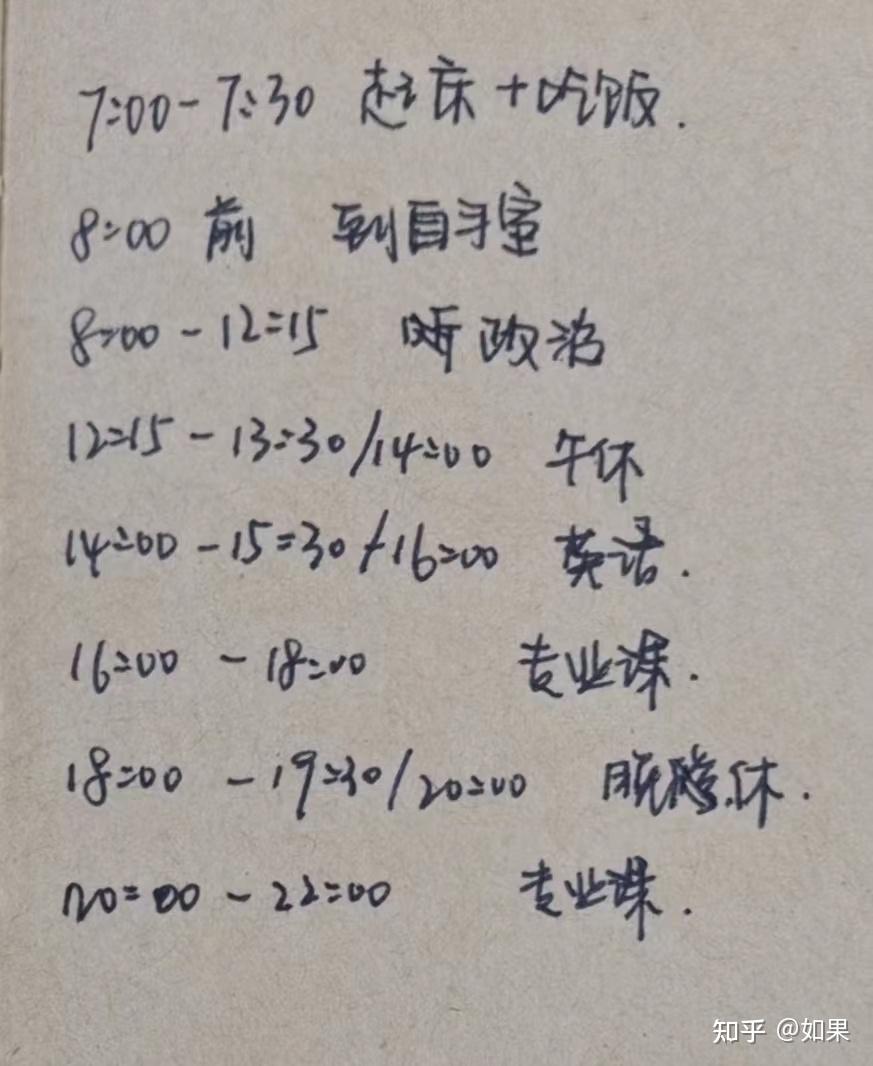 7:00-7:30 起床+吃饭.
8:00 前 到自习室
8:00-12:15 听政治
12:15-13:30/14:00 午休
14:00-15:30/16:00 英语.
16:00-18:00 专业课.
18:00-19:30/20:00 休.
20:00-22:00 专业课.
知乎 @如果